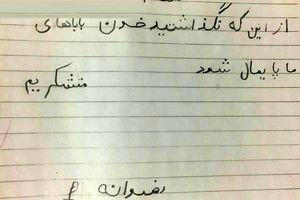 از این که نگذاشتید خون باباهای
ما پایمال شود
متشکریم
رضوانه